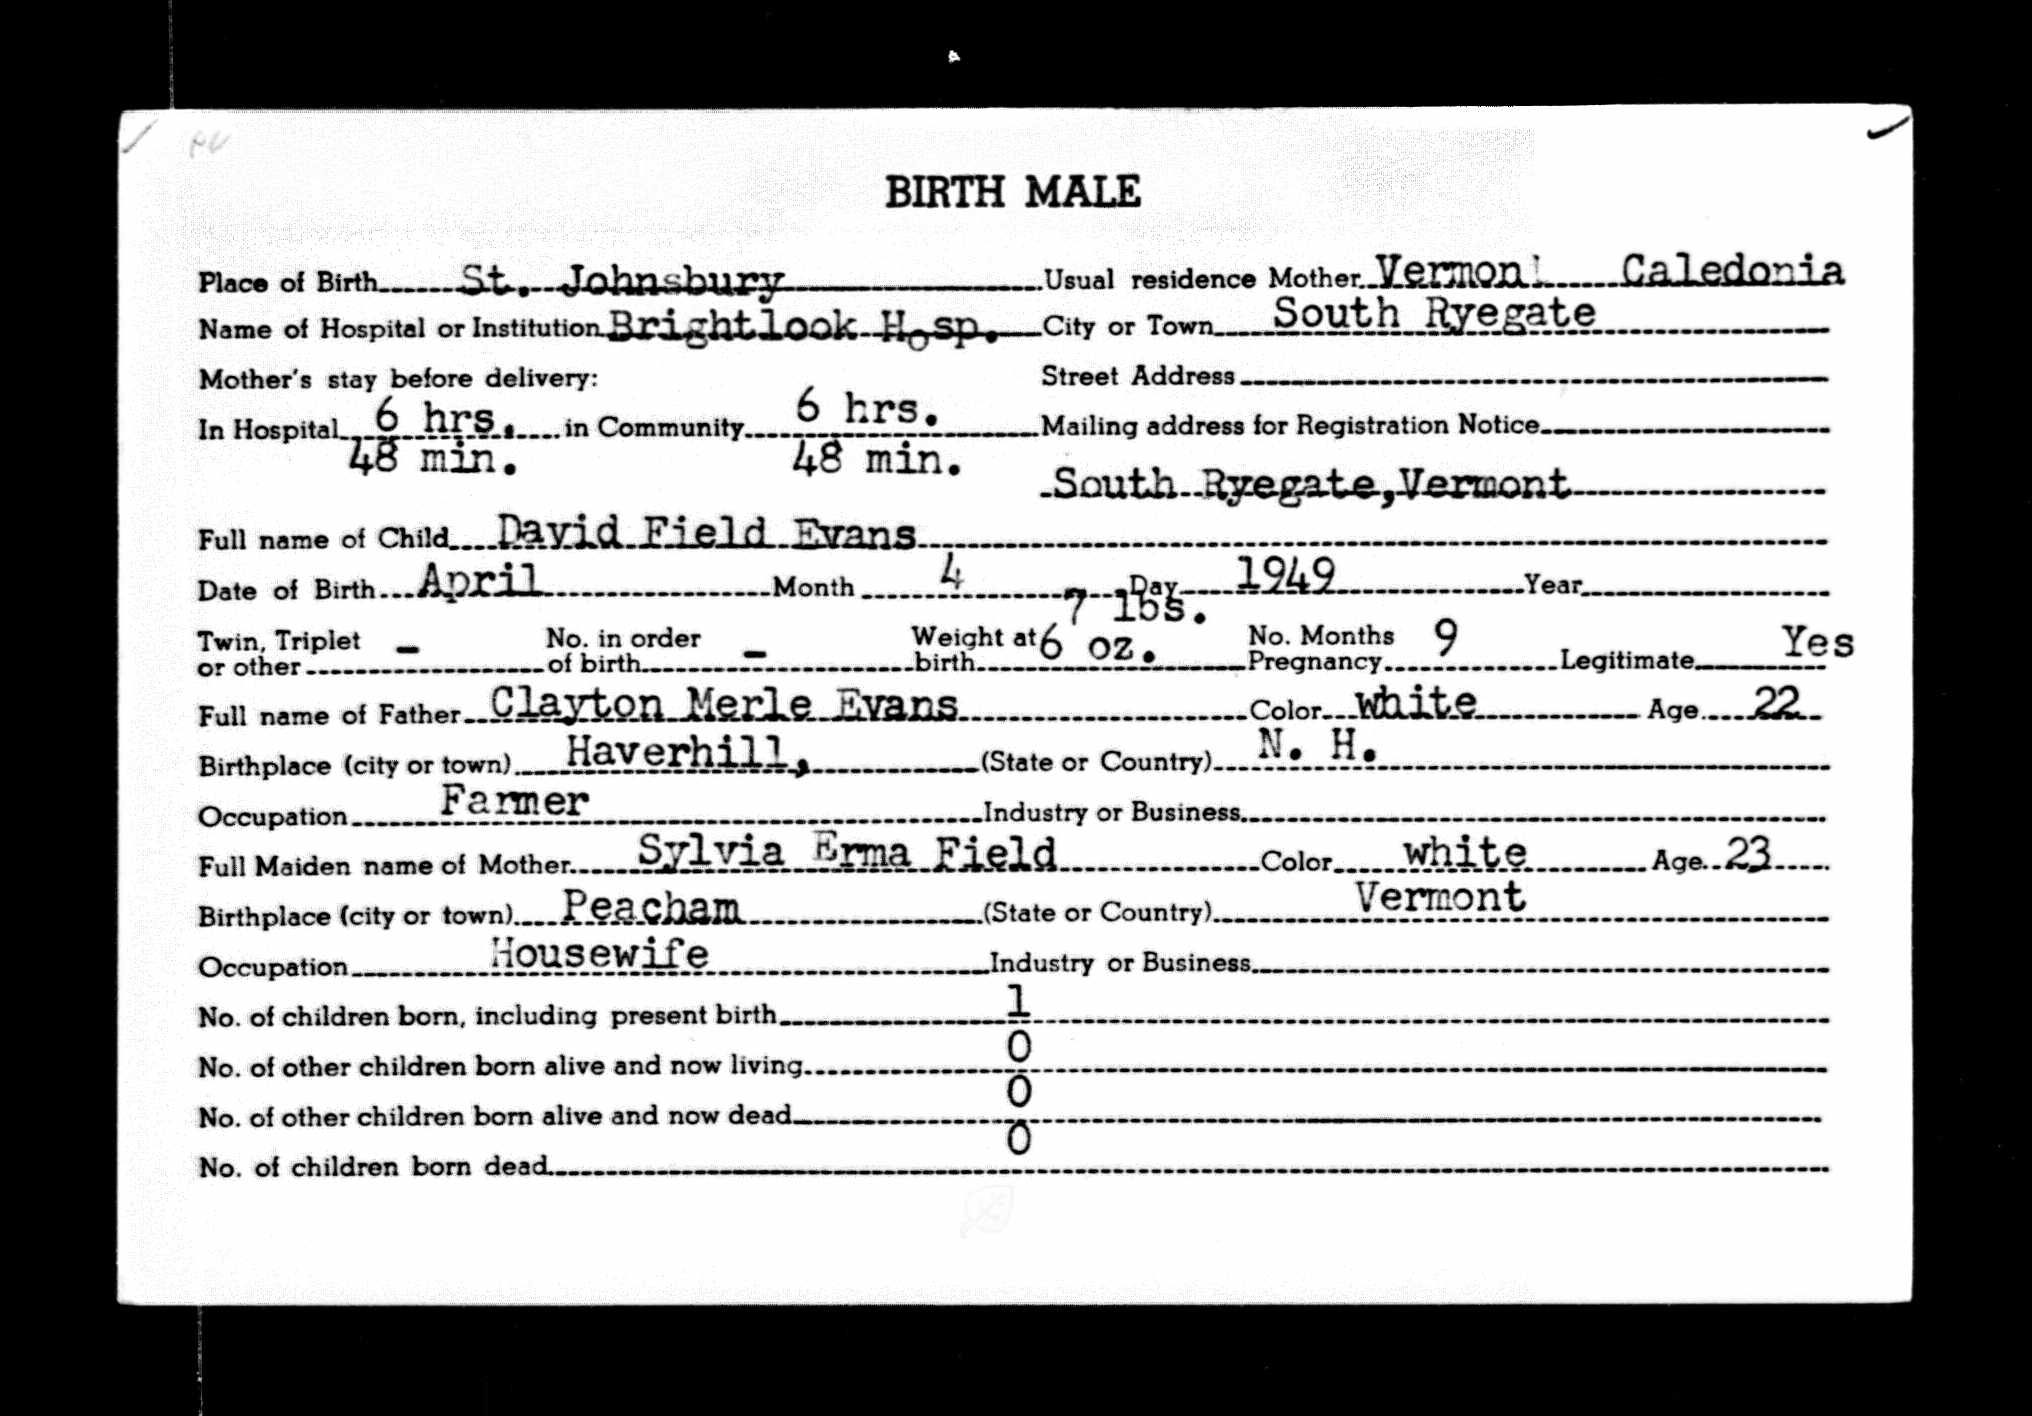 BIRTH MALE
Place of Birth St. Johnsbury Usual residence Mother Vermont Caledonia
Name of Hospital or Institution Brightlook Hosp. City or Town South Ryegate
Mother's stay before delivery: Street Address
In Hospital 6 hrs. in Community 6 hrs. Mailing address for Registration Notice
48 min. 48 min.
South Ryegate, Vermont
Full name of Child David Field Evans
Date of Birth April Month 4 Day 1949 Year
7 lbs.
Twin, Triplet - No. in order - Weight at 6 oz. No. Months 9 Yes
or other of birth birth Pregnancy Legitimate
Full name of Father Clayton Merle Evans Color white Age 22
Birthplace (city or town) Haverhill, (State or Country) N. H.
Occupation Farmer Industry or Business
Full Maiden name of Mother Sylvia Erma Field Color white Age 23
Birthplace (city or town) Peacham (State or Country) Vermont
Occupation Housewife Industry or Business
No. of children born, including present birth 1
No. of other children born alive and now living 0
No. of other children born alive and now dead 0
No. of children born dead 0